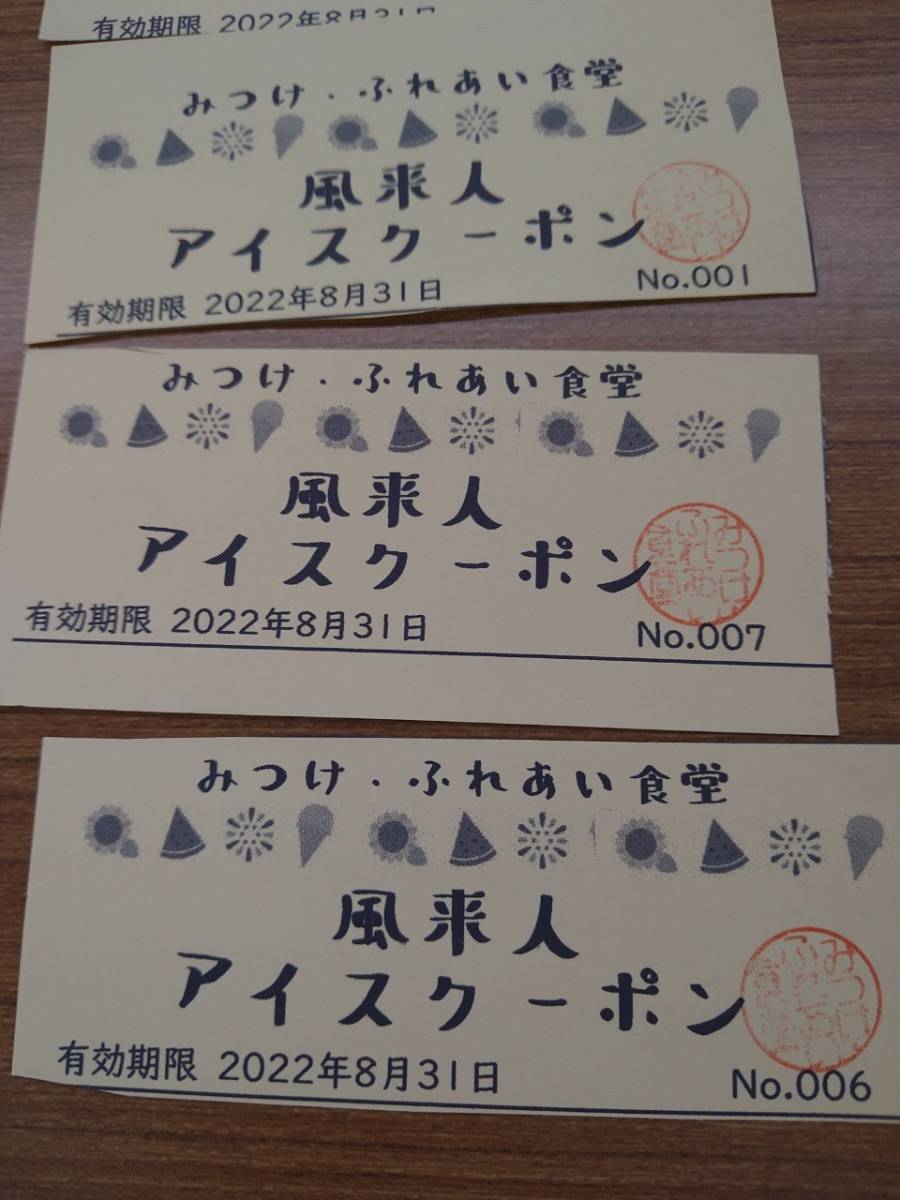 有効期限 2022年8月31日
みつけ・ふれあい食堂
風来人
アイスクーポン
有効期限 2022年8月31日
No.001
みつけ・ふれあい食堂
風来人
アイスクーポン
みつけ
ふれあい
食堂
有効期限 2022年8月31日
No.007
みつけ・ふれあい食堂
風来人
アイスクーポン
有効期限 2022年8月31日
No.006